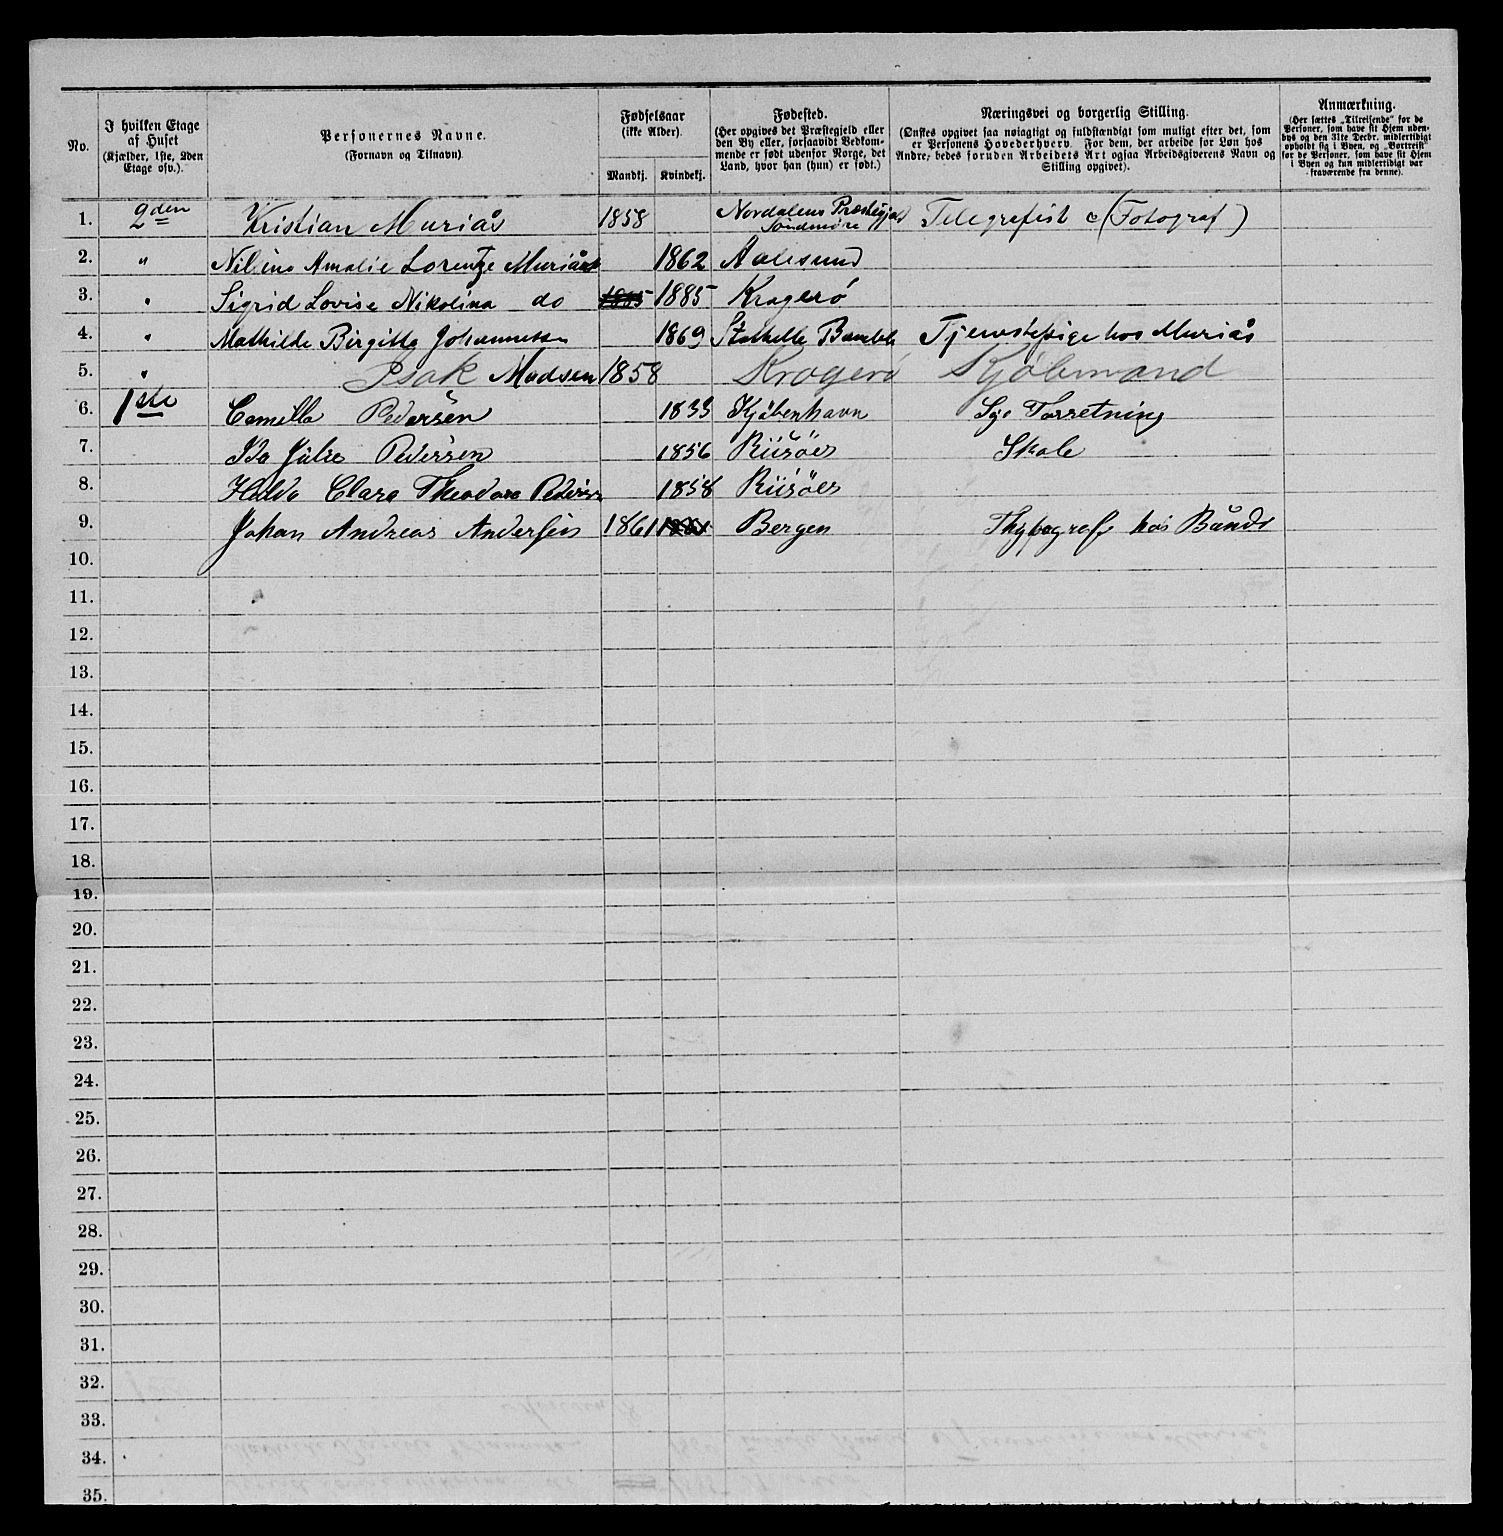 No.
I hvilken Etage
af Huset
(Kjælder, 1ste, 2den
Etage osv.).
Personernes Navne.
(Fornavn og Tilnavn)
Fødselsaar
(ikke Alder).
Mandkj. Kvindekj.
Fødested.
(Her opgives det Præstegjeld eller
den By eller, forsaavidt Vedkom-
mende er født udenfor Norge, det
Land, hvor han (hun) er født.)
Næringsvei og borgerlig Stilling.
(Ønskes opgivet saa nøiagtigt og fuldstændigt som muligt efter det, som
er Personens Hovederhverv. For dem, der arbeide for Løn hos
Andre, bedes foruden Arbeidets Art ogsaa Arbeidsgiverens Navn og
Stilling opgivet).
Anmærkning.
(Her sættes „Tilreisende“ for de
Personer, som have sit Hjem uden-
bys og den 31te Decbr. midlertidigt
opholdt sig i Byen, og „Bortreist“
for de Personer, som have sit Hjem
i Byen og kun midlertidigt var
fraværende fra denne).
1. 2den Kristian Muriås 1858 Nordalens Præstegjæld Søndmøre Telegrafist (Fotograf)
2. " Amalie Lorentze Muriås 1862 Aalesund
3. " Sigrid Lovise Nikolina do 1885 1885 Kragerø
4. " Mathilde Birgitte Johannesen 1869 Stathelle Bamble Tjenestepige hos Muriås
5. " Isak Madsen 1858 Kragerø Kjøbmand
6. 1ste Camilla Pedersen 1833 Kjøbenhavn Forretning
7. Ida Julie Pedersen 1856 Riisöer Skole
8. Hulda Clara Theodora Pedersen 1858 Riisöer
9. Johan Andreas Andersen 1861 1861 Bergen Thypograf hos
10.
11.
12.
13.
14.
15.
16.
17.
18.
19.
20.
21.
22.
23.
24.
25.
26.
27.
28.
29.
30.
31.
32.
33.
34.
35.